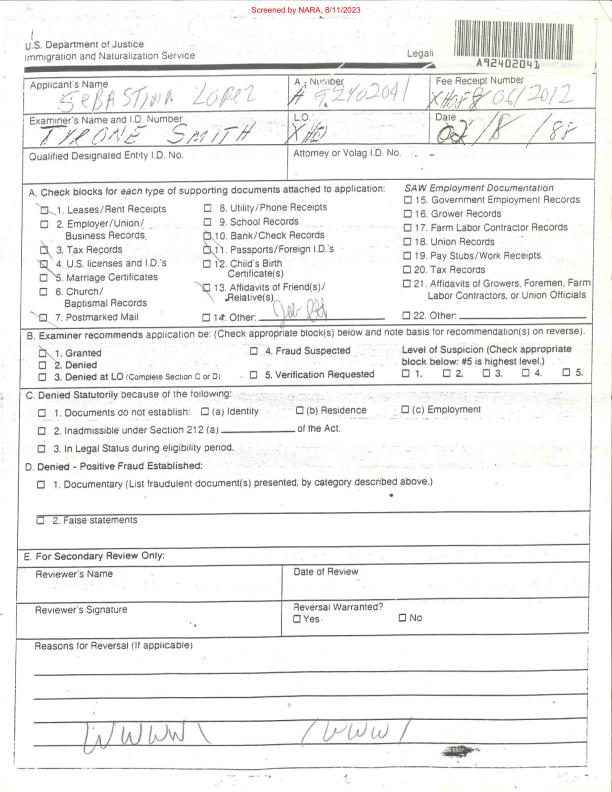 Screened by NARA, 8/11/2023
U.S. Department of Justice
Immigration and Naturalization Service
Legali
A92402041
Applicant's Name
SEBASTINA LOPEZ
A - Number
A 92402041
Fee Receipt Number
Examiner's Name and I.D. Number
TYRONE SMITH
L.O.
XHO
Date
02/8/88
Qualified Designated Entity I.D. No.
Attorney or Volag I.D. No.
A. Check blocks for each type of supporting documents attached to application:
☒ 1. Leases/Rent Receipts
☐ 2. Employer/Union/
Business Records
☒ 3. Tax Records
☒ 4. U.S. licenses and I.D.'s
☒ 5. Marriage Certificates
☐ 6. Church/
Baptismal Records
☒ 7. Postmarked Mail
☐ 8. Utility/Phone Receipts
☐ 9. School Records
☒ 10. Bank/Check Records
☒ 11. Passports/Foreign I.D.'s
☐ 12. Child's Birth
Certificate(s)
☒ 13. Affidavits of Friend(s)/
Relative(s)
☐ 14. Other:
SAW Employment Documentation
☐ 15. Government Employment Records
☐ 16. Grower Records
☐ 17. Farm Labor Contractor Records
☐ 18. Union Records
☐ 19. Pay Stubs/Work Receipts
☐ 20. Tax Records
☐ 21. Affidavits of Growers, Foremen, Farm
Labor Contractors, or Union Officials
☐ 22. Other:
B. Examiner recommends application be: (Check appropriate block(s) below and note basis for recommendation(s) on reverse).
☒ 1. Granted
☐ 2. Denied
☐ 3. Denied at LO (Complete Section C or D)
☐ 4. Fraud Suspected
☐ 5. Verification Requested
Level of Suspicion (Check appropriate
block below: #5 is highest level.)
☐ 1. ☐ 2. ☐ 3. ☐ 4. ☐ 5.
C. Denied Statutorily because of the following:
☐ 1. Documents do not establish: ☐ (a) Identity ☐ (b) Residence ☐ (c) Employment
☐ 2. Inadmissible under Section 212 (a) ________ of the Act.
☐ 3. In Legal Status during eligibility period.
D. Denied - Positive Fraud Established:
☐ 1. Documentary (List fraudulent document(s) presented, by category described above.)
☐ 2. False statements
E. For Secondary Review Only:
Reviewer's Name
Date of Review
Reviewer's Signature
Reversal Warranted?
☐ Yes ☐ No
Reasons for Reversal (If applicable)